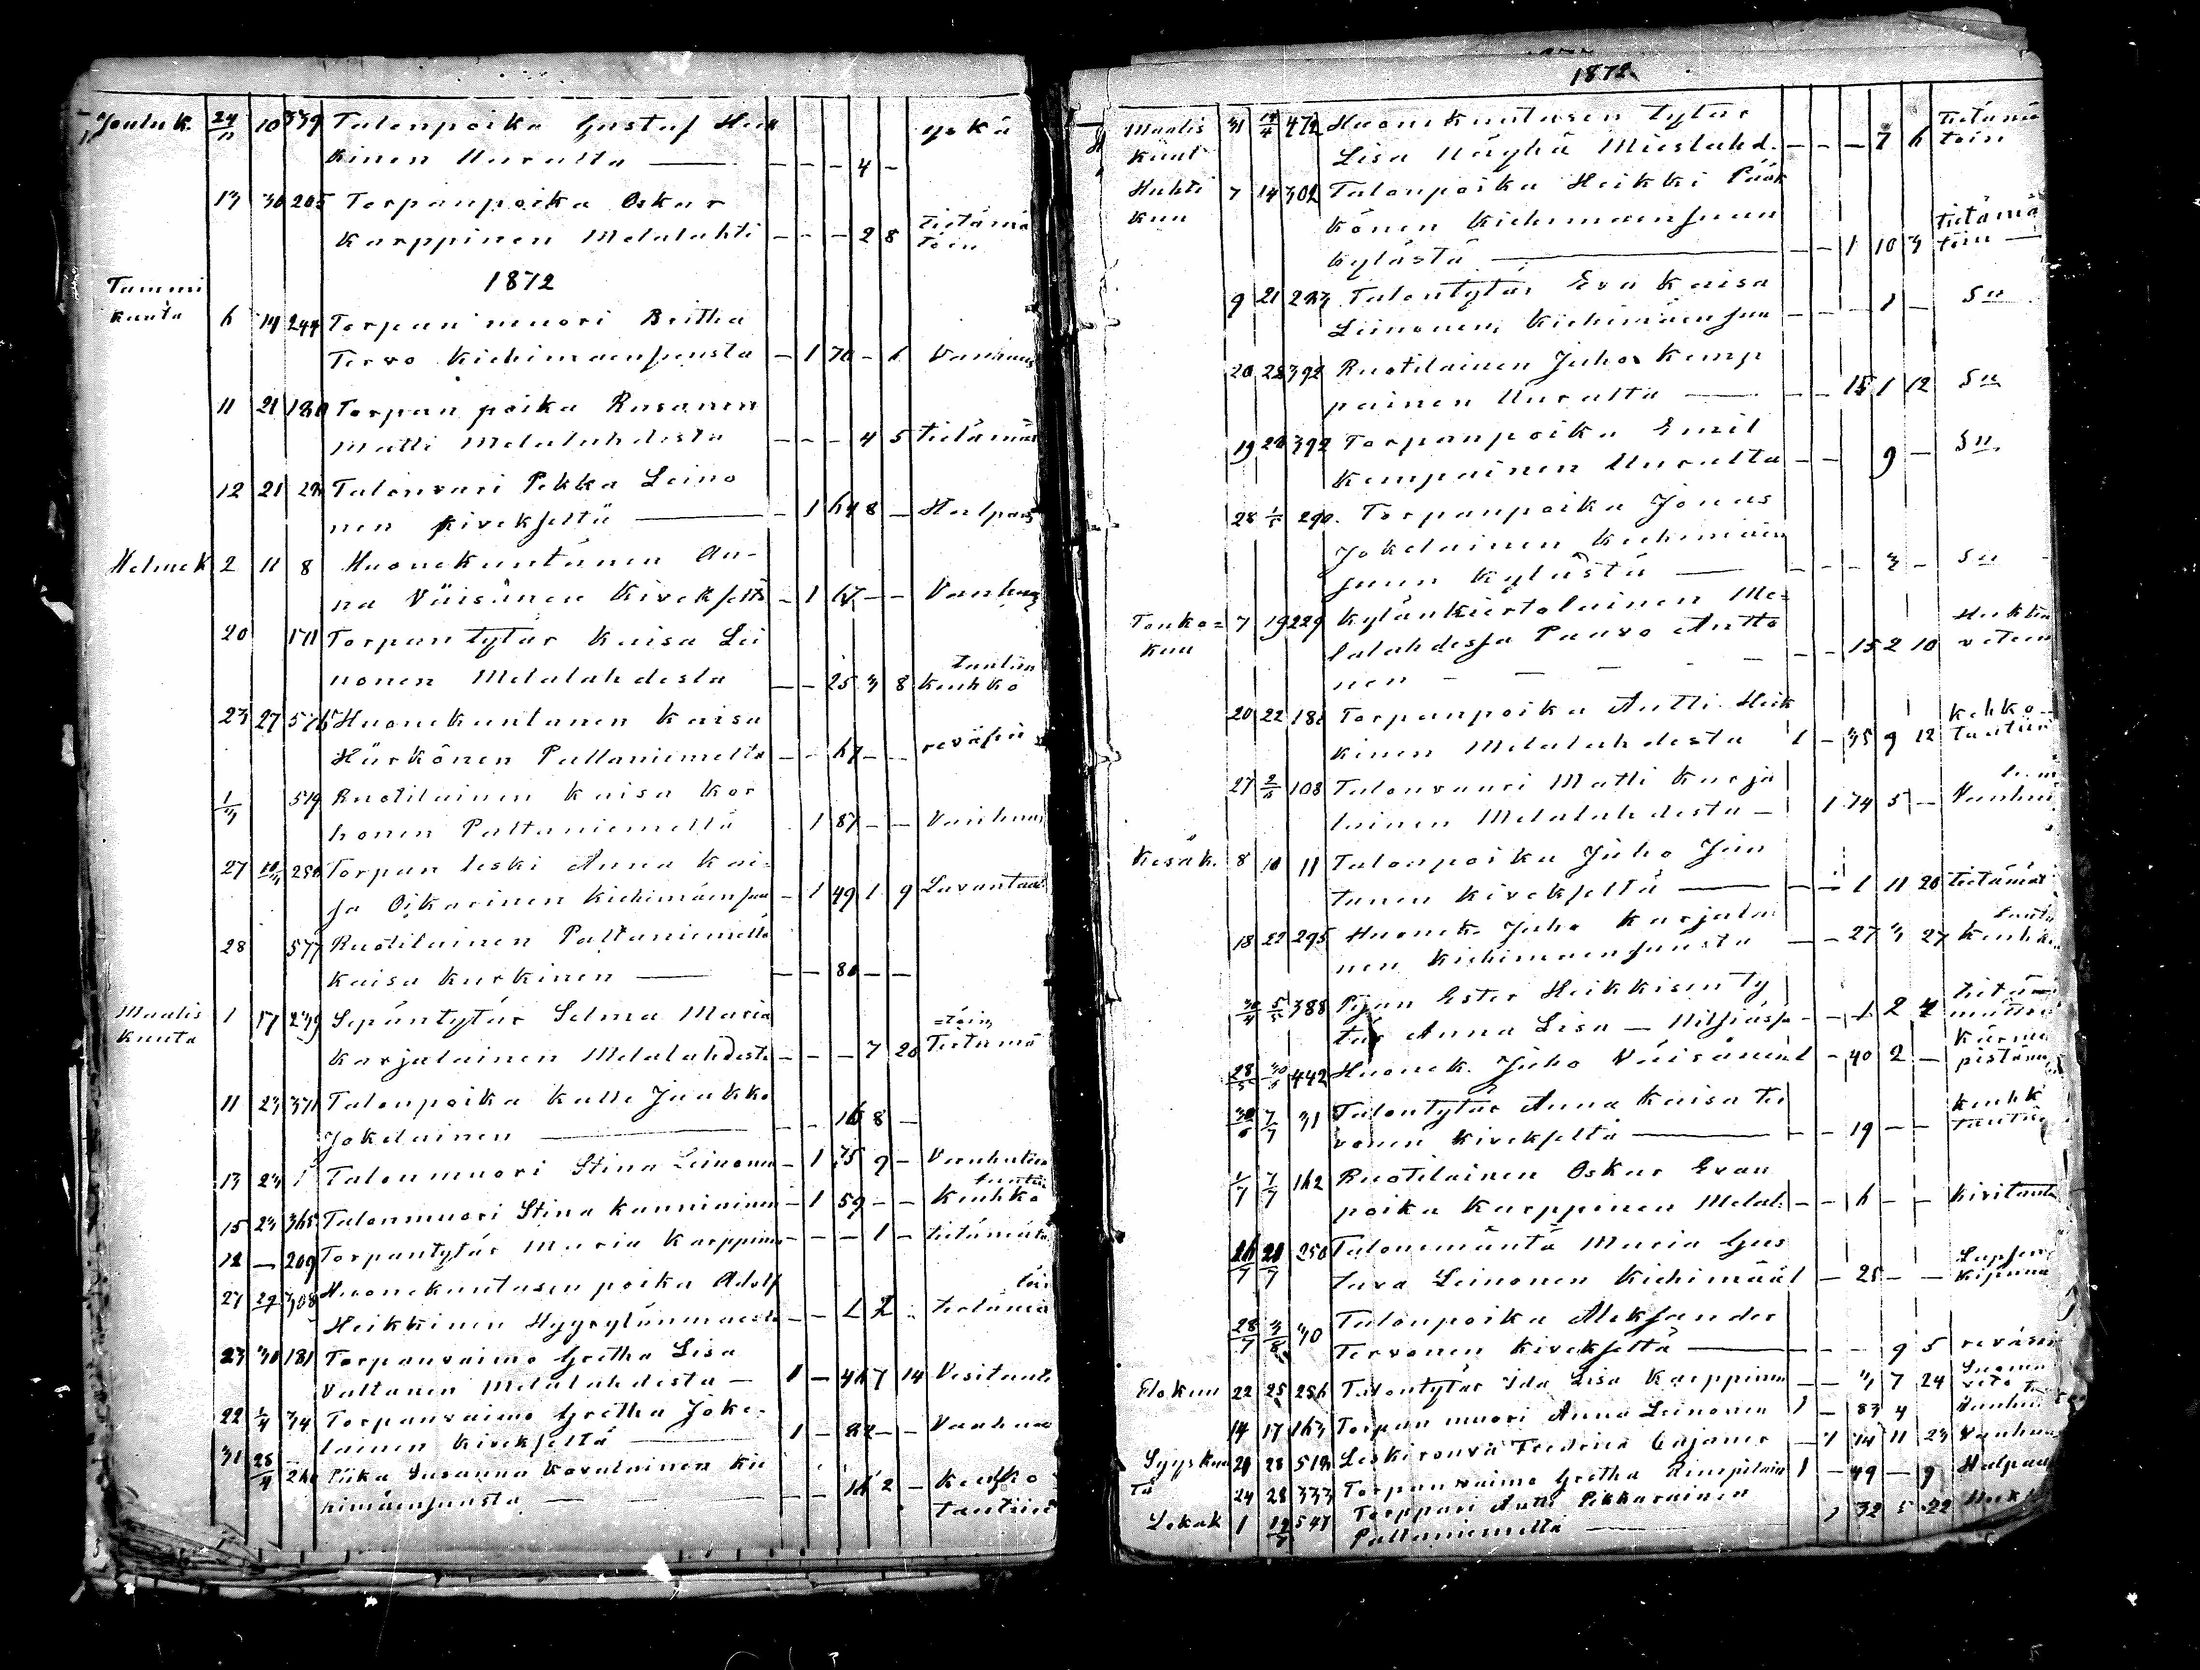 Jouluk. 24/11 10 339 Talonpoika Gustaf Heik
kinen Uuralta — - - - 4 - yskä
13 30 205 Torpanpoika Oskar
Karppinen Melalahti - - - 2 8 tietämä
töin
1872
Tammi
kuuta 6 14 244 Torpan muori Britha
Tervo Kiehimaensuusta - 1 70 - 6 Vanhuus
11 21 180 Torpan poika Rusanen
Matti Melalahdesta - - - 4 5 tietämä
12 21 Talonvari Pekka Leino
nen Kivekseltä — - 1 64 8 - Halpaus
Helmek 2 11 8 Huonekuntanen An-
na Väisänen Kivekseltä - 1 67 - - Vanhuus
20 171 Torpantytär Kaisa Lei
nonen Melalahdesta - - 25 3 8 keuhko
tautiin
23 27 576 Huonekuntanen Kaisa
Härkönen Paltaniemeltä - - 67 - - reväsin
1/3 519 Ruotilainen Kaisa Kor
honen Paltaniemellä 1 87 - - Vanhuus
27 10/3 250 Torpan leski Anna Kai-
sa Oikarinen Kiehimäensuu - 1 49 1 9 Lavantau
28 577 Ruotilainen Paltaniemellä
Kaisa Kurkinen — - - 80 - -
Maalis
kuuta 1 17 239 Sepäntytär Selma Maria
Karjalainen Melalahdesta - - - 7 20 Tietämä
=töin
11 23 371 Talonpoika Kalle Jaakko
Jokelainen — - - 16 8 -
13 23 1 Talonmuori Stina Leinonen - 1 75 9 - Vanhuuten
15 23 365 Talonmuori Stina Kanniainen - 1 59 - - Keuhko
tautiin
12 — 209 Torpantytär Maria Karppinen - - - 1 - tietämätä
27 29/7 308 Huonekuntasen poika Adolf
Heikkinen Hyyrylänmaesta - - 2 tietämä
töin
23 30 181 Torpanvaimo Gretha Lisa
Valtanen Melalahdesta — 1 - 46 7 14 Vesitauti
22 1/4 34 Torpanvaimo Gretha Joke-
lainen Kivekseltä — 1 - 82 - - Vanhuus
31 28/4 Piika Susanna Kovalainen Kie
himäensuusta — - - 16 2 - Keuhko
tautiin
1872
Maalis
kuut 31 14/4 472 Huonekuntasen tytär
Lisa Näyhä Mieslahd. - - - 7 6 Tietämä
töin
Huhti
kuu 7 14 302 Talonpoika Heikki Pääk
könen Kiehimaensuun
kylästä — - - 1 10 3 tietämä
töin —
9 21 283 Talontytär Eva Kaisa
Leinonen, Kiehimäensuu - - - 1 - Su
20 28 392 Ruotilainen Juho Kemp
painen Uuralta — - - 15 1 12 Su
19 28 392 Torpanpoika Emil
Kempainen Uuralta - - 9 - Su
28 1/5 290. Torpanpoika Jonas
Jokelainen Kiehimäin
suun kylästä — - - - 3 - Su
Touko=
kuu 7 19 229 Kylänkiertolainen Me=
lalahdessa Paavo Antto
nen - - - - - 15 2 10 Hukku
veteen
20 22 18 Torpanpoika Antti Heik
kinen Melalahdesta 1 - 35 9 12 kehko-
tautiin
27 2/6 108 Talonvaari Matti Karja
lainen Melalahdesta - 1 74 5 - Vanhuu
Kesäk. 8 10 11 Talonpoika Juho Jun
tunen Kivekseltä — - - 1 11 20 tietämä
18 22 295 Huonek. Juho Karjalai
nen Kiehimaensuusta - - 27 3 27 Keuhko
tauti
5/5 388 Piian Ester Heikkisen ty
tär Anna Lisa — Mieslahdesta - - 1 2 4 tietä
mättö
28/5 30/6 442 Huonek. Juho Väisänen 1 - 40 2 - Kärme
pistämä
30/6 7/7 31 Talontytär Anna Kaisa Ter
vonen Kivekseltä — - - 19 - - keuhk
tautiin
1/7 7/7 162 Ruotilainen Oskar Evan
poika Karppinen Melal. - - 6 - - kivitauti
16/7 21/7 250 Talonemäntä Maria Gus
tava Leinonen Kiehimää 1 - 25 - - Lapsen
kipuun
28/7 3/8 30 Talonpoika Aleksander
Tervonen Kivekseltä — - - - 9 5 reväsin
Elokuu 22 25 256 Talontytär Ida Lisa Karppinen - - 3 7 24
14 17 163 Torpan muori Anna Leinonen 1 - 83 4 Vanhuu
Syyskuu
ta 20 28 512 Leskirouva Fredrica Cajaner - 1 74 11 23 Vanhuu
24 28 333 Torpanvaimo Gretha Rimpiläin 1 - 49 - 9 Halpau
Lokak 1 547 Torppari Antti Pikkarainen
Paltaniemeltä — 1 32 5 22 Hukk